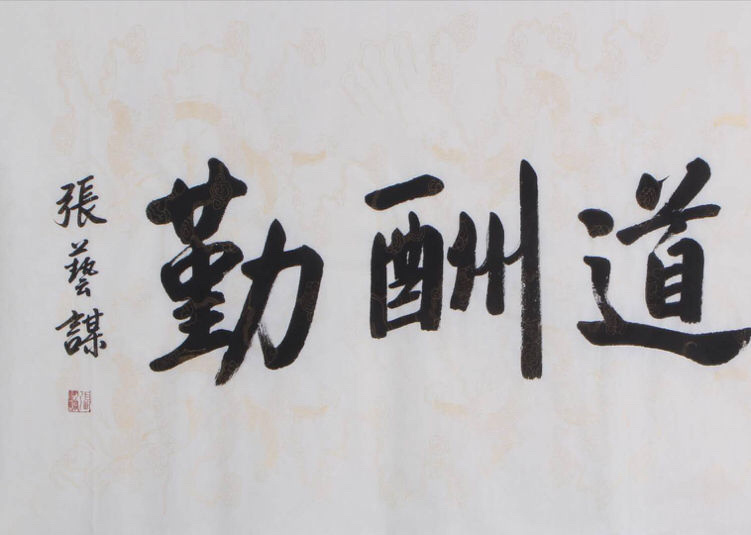 道酬勤
張藝謀